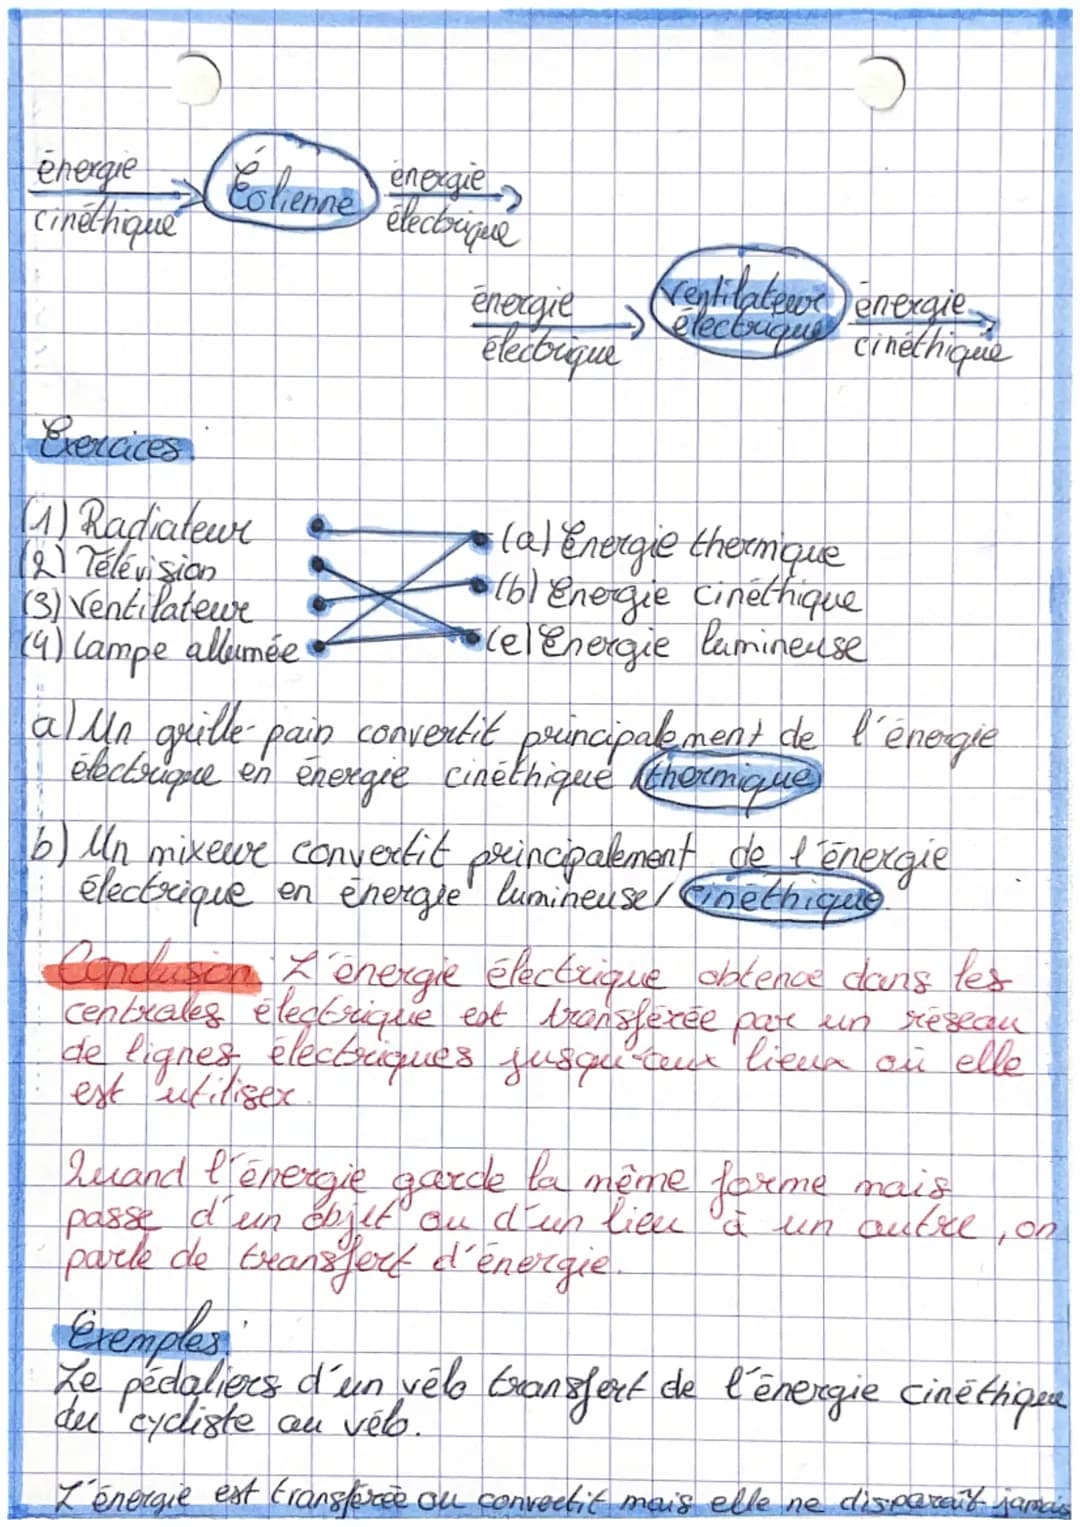 énergie
cinéthique
Éolienne
énergie
électrique
énergie
électrique
ventilateur
électrique
énergie
cinéthique
Exercices.
(1) Radiateur
(2) Télévision
(3) Ventilateur
(4) lampe allumée
(a) Énergie thermique
(b) Énergie cinéthique
(e) Énergie lumineuse
a) Un grille-pain convertit principalement de l'énergie
électrique en énergie cinéthique /thermique
b) Un mixeur convertit principalement de l'énergie
électrique en énergie lumineuse/ cinéthique.
Conclusion: L'énergie électrique obtenue dans les
centrales électrique est transférée par un réseau
de lignes électriques jusqu'aux lieux où elle
est utiliser.
Quand l'énergie garde la même forme mais
passe d'un objet ou d'un lieu à un autre, on
parle de transfert d'énergie.
Exemples:
Le pédaliers d'un vélo transfert de l'énergie cinéthique
du cycliste au vélo.
L'énergie est transférée ou convertit mais elle ne disparaît jamais